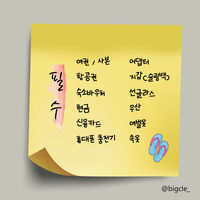 필수
여권 / 사본
항공권
숙소바우처
현금
신용카드
휴대폰 충전기
어댑터
지갑(슬링백)
선글라스
우산
여벌옷
속옷
@bigcle_